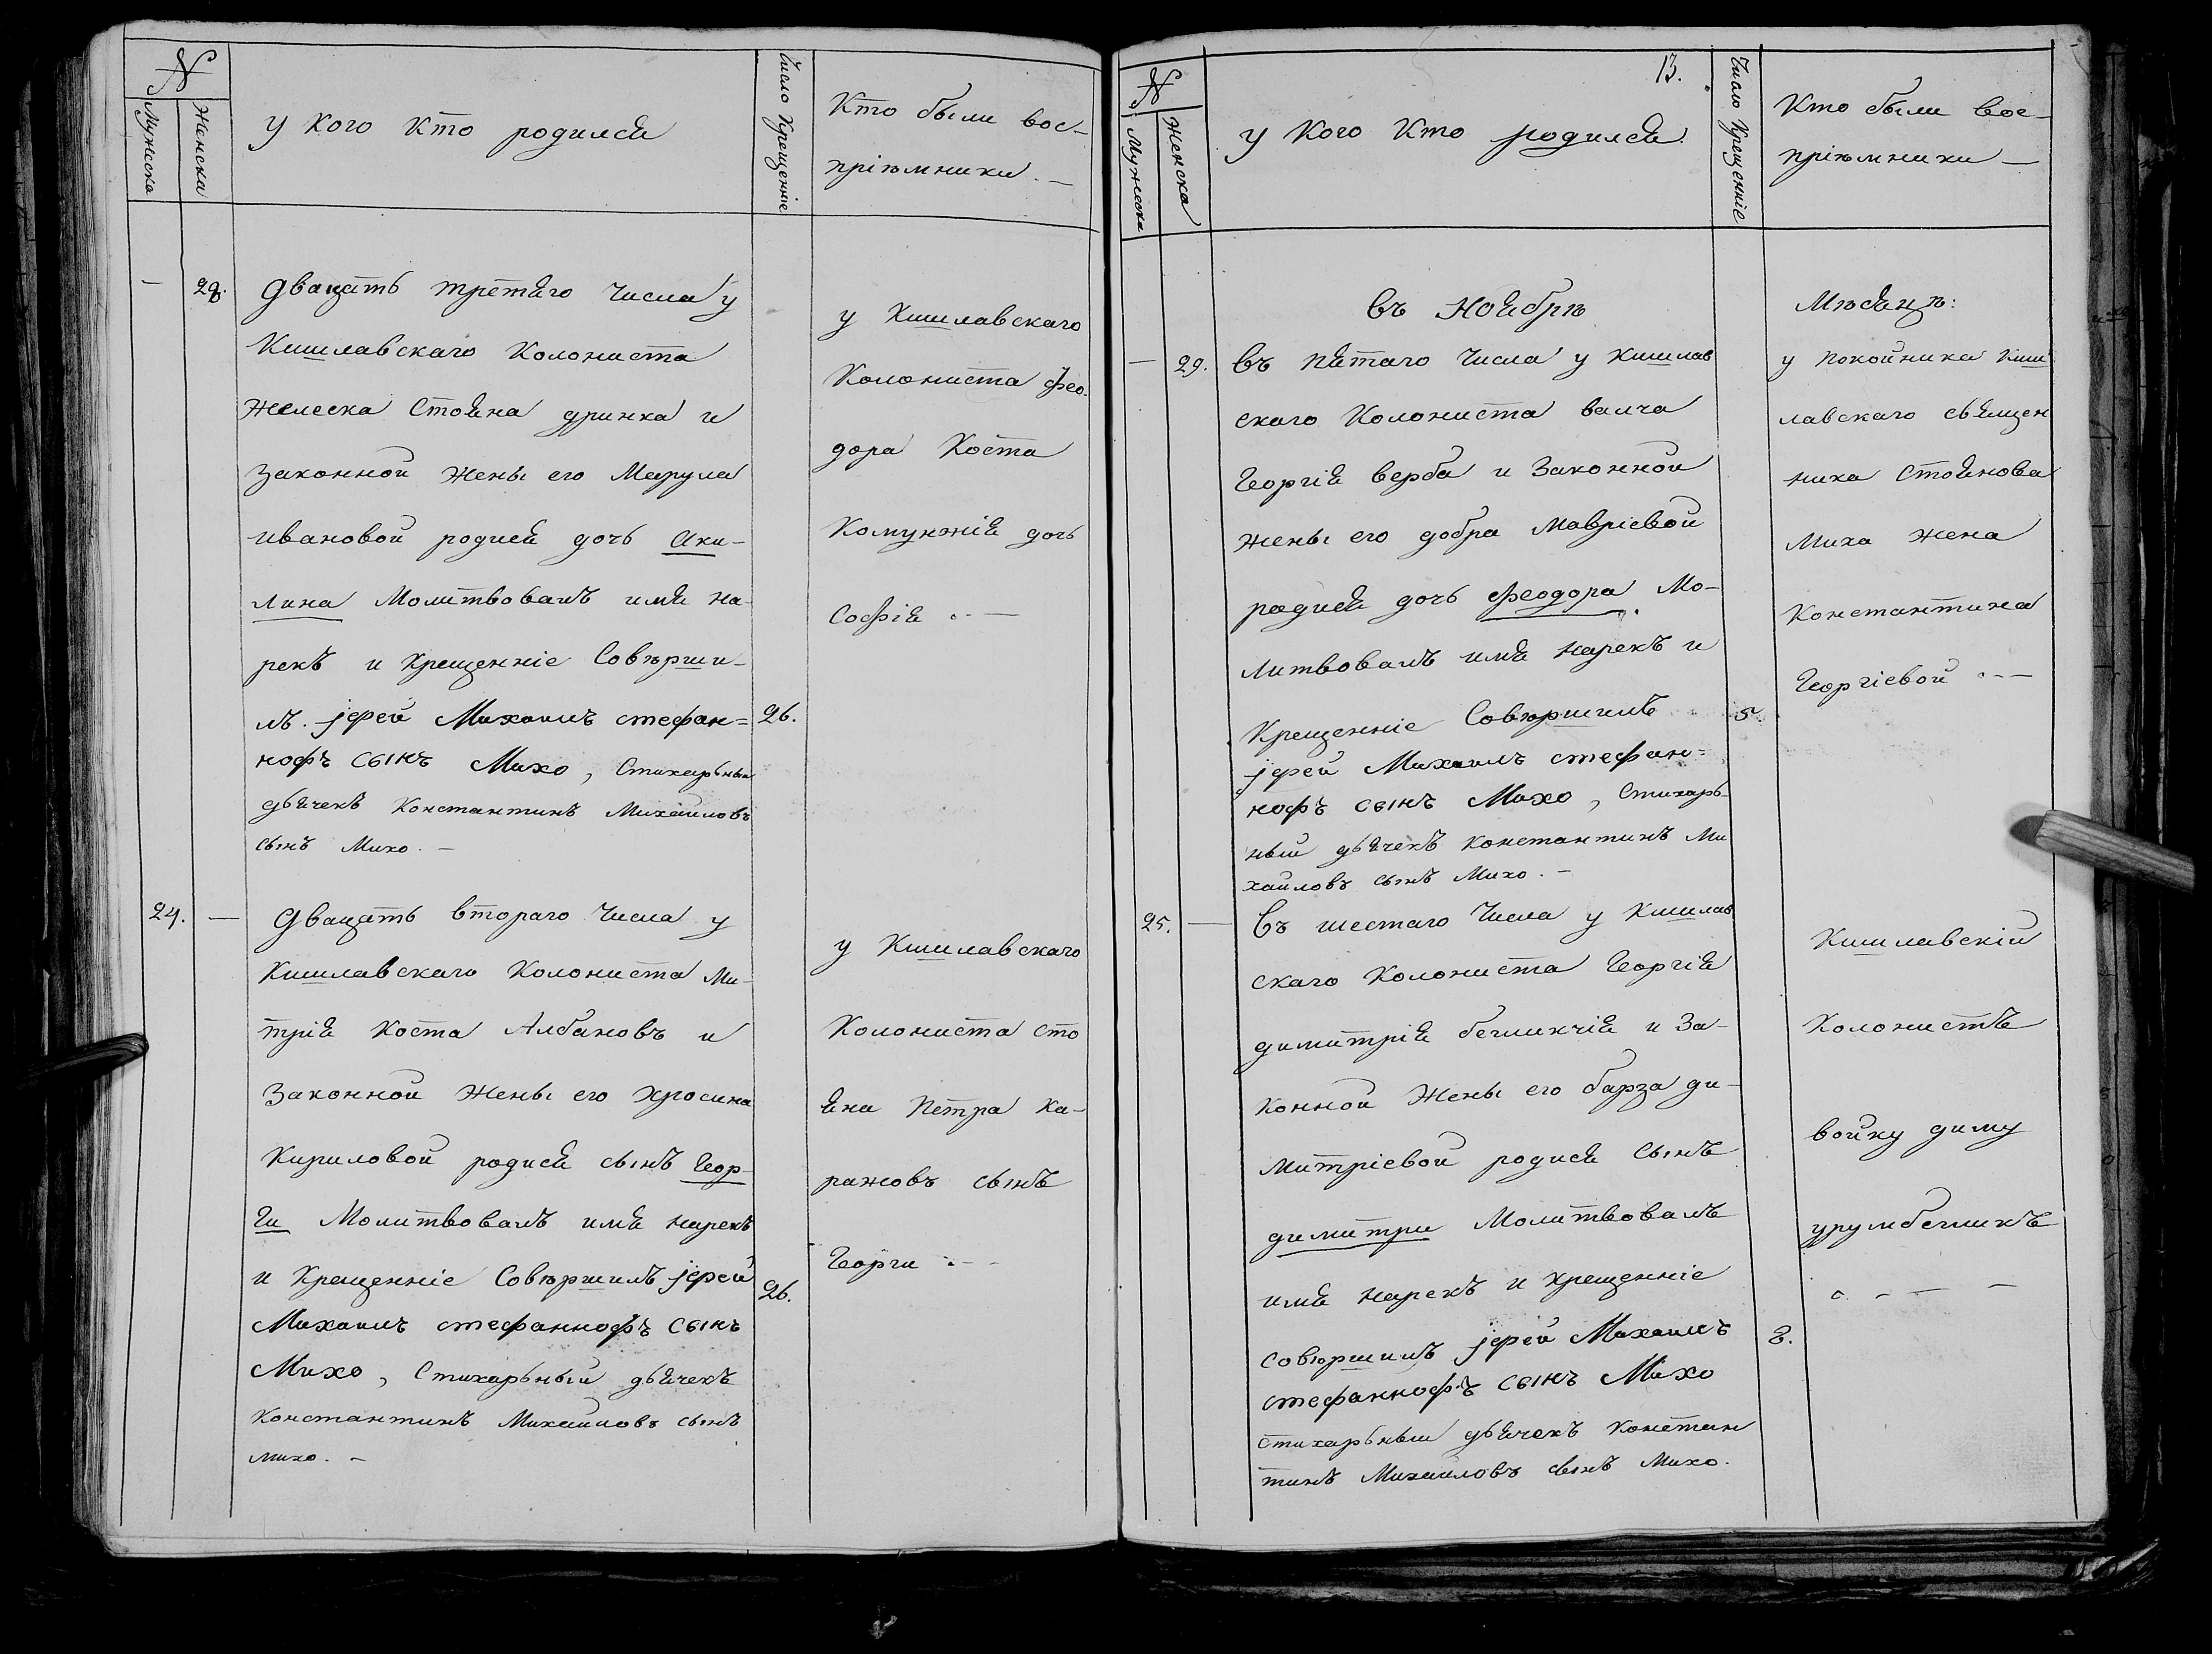 №
Мужеска
Женска
у кого кто родился
Число Крещенніе
Кто были вос-
пріѣмники. —
— 28. Двацать третяго числа у
Кишлавскаго Колониста
Желеска Стояна дринка и
законной жены его Марула
ивановой родися дочь Аки-
лина Молитвовалъ имя на-
рекъ и Крещенніе Совѣрши-
лъ. іерей Михаилъ стефан=
нофъ сынъ Михо, Стихарьный
дьячекъ Константинъ Михаиловъ
сынъ Михо. —
26.
у Кишлавскаго
Колониста Фео-
дора Коста
Комунжія дочь
Софія . —
24. — Двацать втораго числа у
Кишлавскаго Колониста Ми-
трія Коста Албановъ и
Законной Жены его Хросина
Кириловой родися сынъ Геор-
ги Молитвовалъ имя нарекъ
и Крещенніе Совѣршилъ іерей
Михаилъ стефаннофъ сынъ
Михо, Стихарьный дьячекъ
Константинъ Михаиловъ сынъ
михо. —
26.
у Кишлавскаго
Колониста сто
яна Петра ка-
ражовъ сынъ
Георги . — —
13.
№
Мужеска
Женска
у кого кто родился
Число Крещенніе
Кто были вос-
пріѣмники —
въ Ноябрѣ Мѣсяцѣ:
— 29. въ пятаго числа у Кишлав
скаго Колониста валча
Георгія верба и Законной
жены его добра Мавріевой
родися дочь Феодора Мо-
литвовалъ имя нарекъ и
Крещенніе Совѣршилъ
іерей Михаилъ стефан=
нофъ сынъ Михо, Стихарь-
ный дьячекъ константинъ Ми
хаиловъ сынъ Михо. —
5.
у покойника Киш
лавскаго священ
ника Стоянова
Миха жена
Константина
Георгіевой . — —
25. — въ шестаго числа у Кишлав
скаго Колониста Георгія
димитрія бегликчія и За-
конной Жены его барза ди-
митріевой родися сынъ
димитри Молитвовалъ
имя нарекъ и Крещенніе
совѣршилъ іерей Михаилъ
стефаннофъ сынъ Михо
стихарьный дьячекъ констан
тинъ Михаиловъ сынъ Михо.
8.
Кишлавскій
Колонистъ
войку диму
урумбегликъ
. — — —